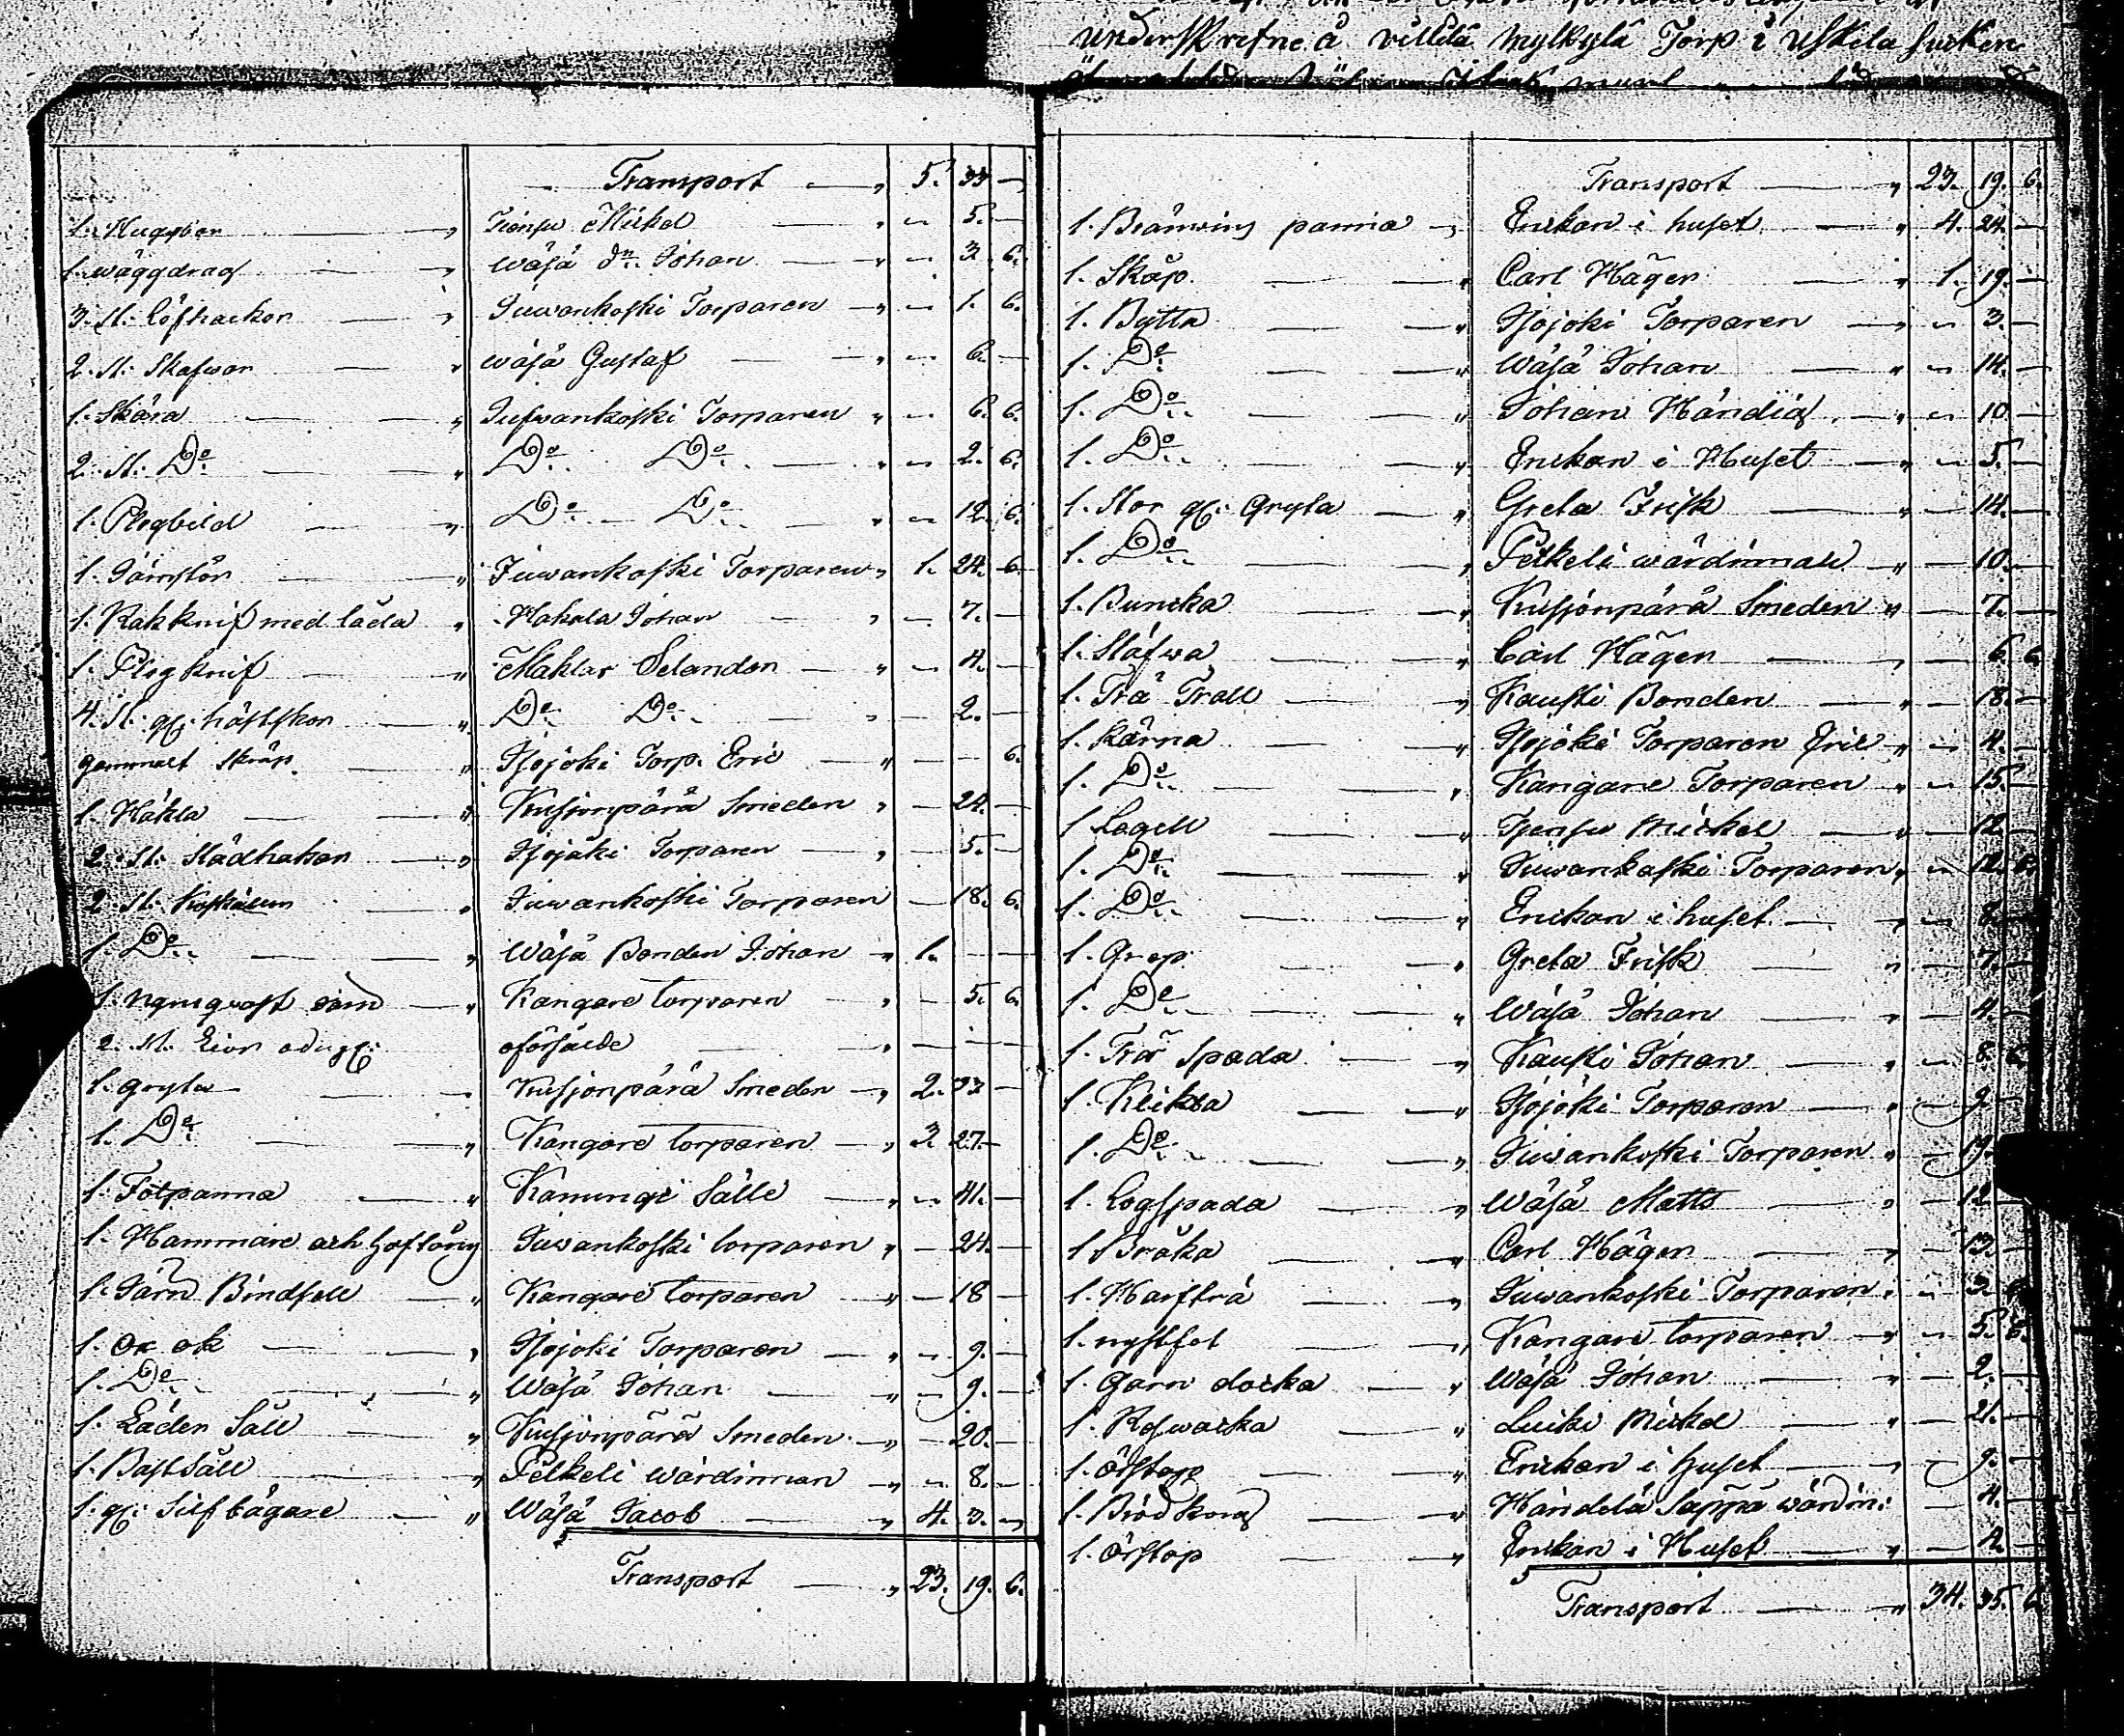 underskrefne å villila Mylkylä Torp i Uskela Sucken
Transport 5. 33 —
1. Huggber „ Tionsu Mickel „ — 5. —
1. wäggdrag „ Wäsä dn: Johan „ — 3. 6.
3. st: löfhackor „ Juwankoski Torparen „ — 1. 6.
2. st: Skafwor „ Wäsä Gustaf „ — 6. —
1. Skära „ Jufwankoski Torparen „ — 6. 6.
2. st: Do „ Do Do „ — 2. 6.
1. Plogbild „ Do Do „ — 12. 6.
1. Järnstör „ Juwankoski Torparen „ 1. 24. 6.
1. Rakknif med låda „ Hakala Johan „ — 7. —
1. Plogknif „ Mäklar Selander „ — 4. —
4. st: gl: hästskor „ Do Do „ — 2. —
gammalt Skräp „ Isojoki Torp: Eric „ — — 6.
1. Häkla „ Kusjonpärä Smeden „ — 24. —
2. st: Slädhakar „ Isojoki Torparen „ — 5. —
2. st: „ Juwankoski Torparen — 18. 6.
1. Do „ Wäsä Bonden Johan „ 1.
1. „ Kangare torparen „ — 5. 6.
2. st. Lior odugl: oförsålde „ — — —
1. gryta „ Kusjonpärä Smeden „ 2. 33 —
1. Do „ Kangare torparen „ 3. 27. —
1. Fotpanna „ Kanungi Sälle „ — 41. —
1. Hammare och hoftång Juwankoski torparen „ — 24. —
1. Järn Bindsele „ Kangare torparen „ — 18 —
1. Ox ok „ Isojoki Torparen „ — 9. —
1. Do „ Wäsä Johan „ — 9. —
1. Läder Såll „ Kusjonpärä Smeden „ — 20. —
1. Bastsåll „ Pelkeli wärdinnan „ — 8. —
1. gl: Silfbägare „ Wäsä Jacob „ 4. 3. —
Transport „ 23. 19. 6.
Transport „ 23. 19. 6.
1. Bränwins panna „ Enckan i huset „ 4. 24. —
1. Skåp „ Carl Hägen „ 1. 19. —
1. Bytta „ Isojoki Torparen „ — 3. —
1. Do „ Wäsä Johan „ — 14. —
1. Do „ Johan Händig „ — 10 —
1. Do „ Enckan i Huset „ — 5. —
1. Stor gl: Gryta „ Greta Frisk „ — 14. —
1. Do „ Pelkeli wärdinnan „ — 10. —
1. Buncka „ Kusjonpärä Smeden „ — 7. —
1. Stäfwa „ Carl Hägen „ — 6. 6.
1. Trä Trall „ Kauski Bonden „ — 18. —
1. Kärna „ Isojoki Torparen Eric „ — 4. —
1. Do „ Kangare Torparen „ — 15. —
1 Lagell „ Isensu Mickel „ — 12 —
1. Do „ Juwankoski Torparen „ — 12. 6.
1. Do „ Enckan i huset „ — 8. —
1. Grep „ Greta Frisk „ — 7. —
1. Do „ Wäsä Johan „ — 4. —
1. Trä Spada „ Kauski Johan „ — 8. 6.
1. Klikka „ Isojoki Torparen „ — 9 —
1. Do „ Juwankoski Torparen „ — 19.
1. Logspada „ Wäsä Matts „ — 12 —
1 Bråka „ Carl Hägen „ — 13. —
1. Harfträ „ Juwankoski Torparen „ — 3. 6.
1. nystfot „ Kangare torparen „ — 5. 6.
1. Garn docka „ Wäsä Johan „ — 2. —
1. „ Luiki Mickel „ — 21. —
1. ölstop „ Enckan i huset „ — 9. —
1. Brödkorg „ Händelä Sappa wärdin: — 4. —
1. ölstop „ Enckan i Huset „ — 4. —
Transport „ 34. 35. 6.